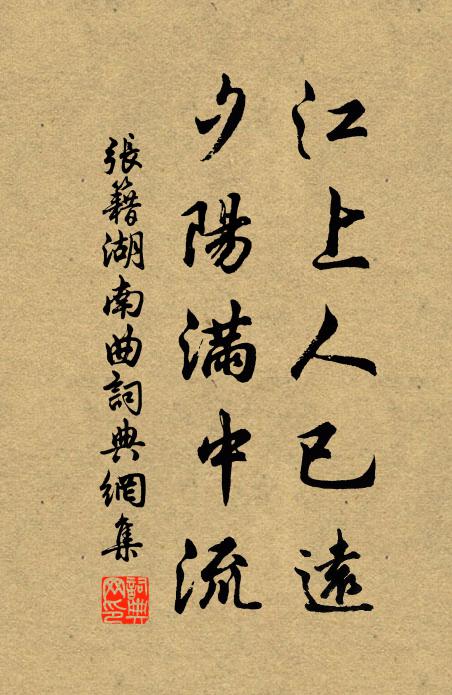 江上人已遠
夕陽滿中流
張籍湖南曲詞典網集
詞典网印